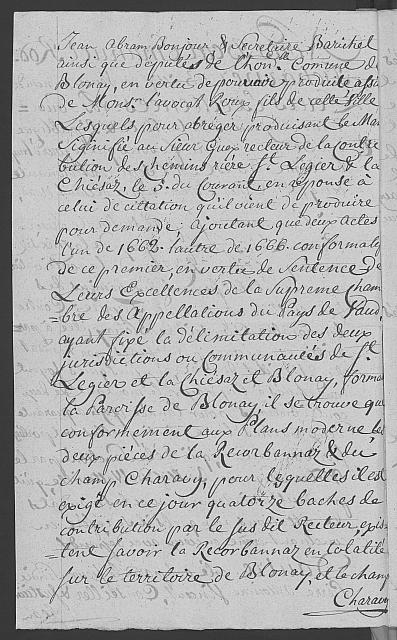 Jean Abram Bonjour & Secretaire Barichel
ainsi que députés de l'hon.ble Comune de
Blonay, en vertu de pouvoir produite assisté
de Mons.r l'avocat Roux fils de cette Ville
Lesquels pour abréger produisant le Man
Siginifié au Sieur Quex recteur de la contri
bution des chemins rière S.t Legier & la
Chiésaz, le 5. du Courant, en réponse à
celui de cittation qu'il vient de produire
pour demande, ajoutant que deux actes
l'un de 1662. l'autre de 1666. conformaty
de ce premier, en vertu de Sentence de
Leurs Excellences de la Supreme Cham
=bre des Appellations du Pays de Vaud,
ayant fixé la délimitation des deux
jurisdictions ou Communautés de S.t
Legier et la Chiésaz et Blonay, formant
la Paroisse de Blonay, il se trouve que
conformement aux Plans moderne les
deux pièces de la Recorbannaz & du
champ Charavy, pour lesquelles il est
exigé en ce jour quatorze baches de
contribution par le susdit Recteur, exis=
tent savoir la Recorbannaz en totalité
sur le territoire de Blonay, et le champ
Charavy